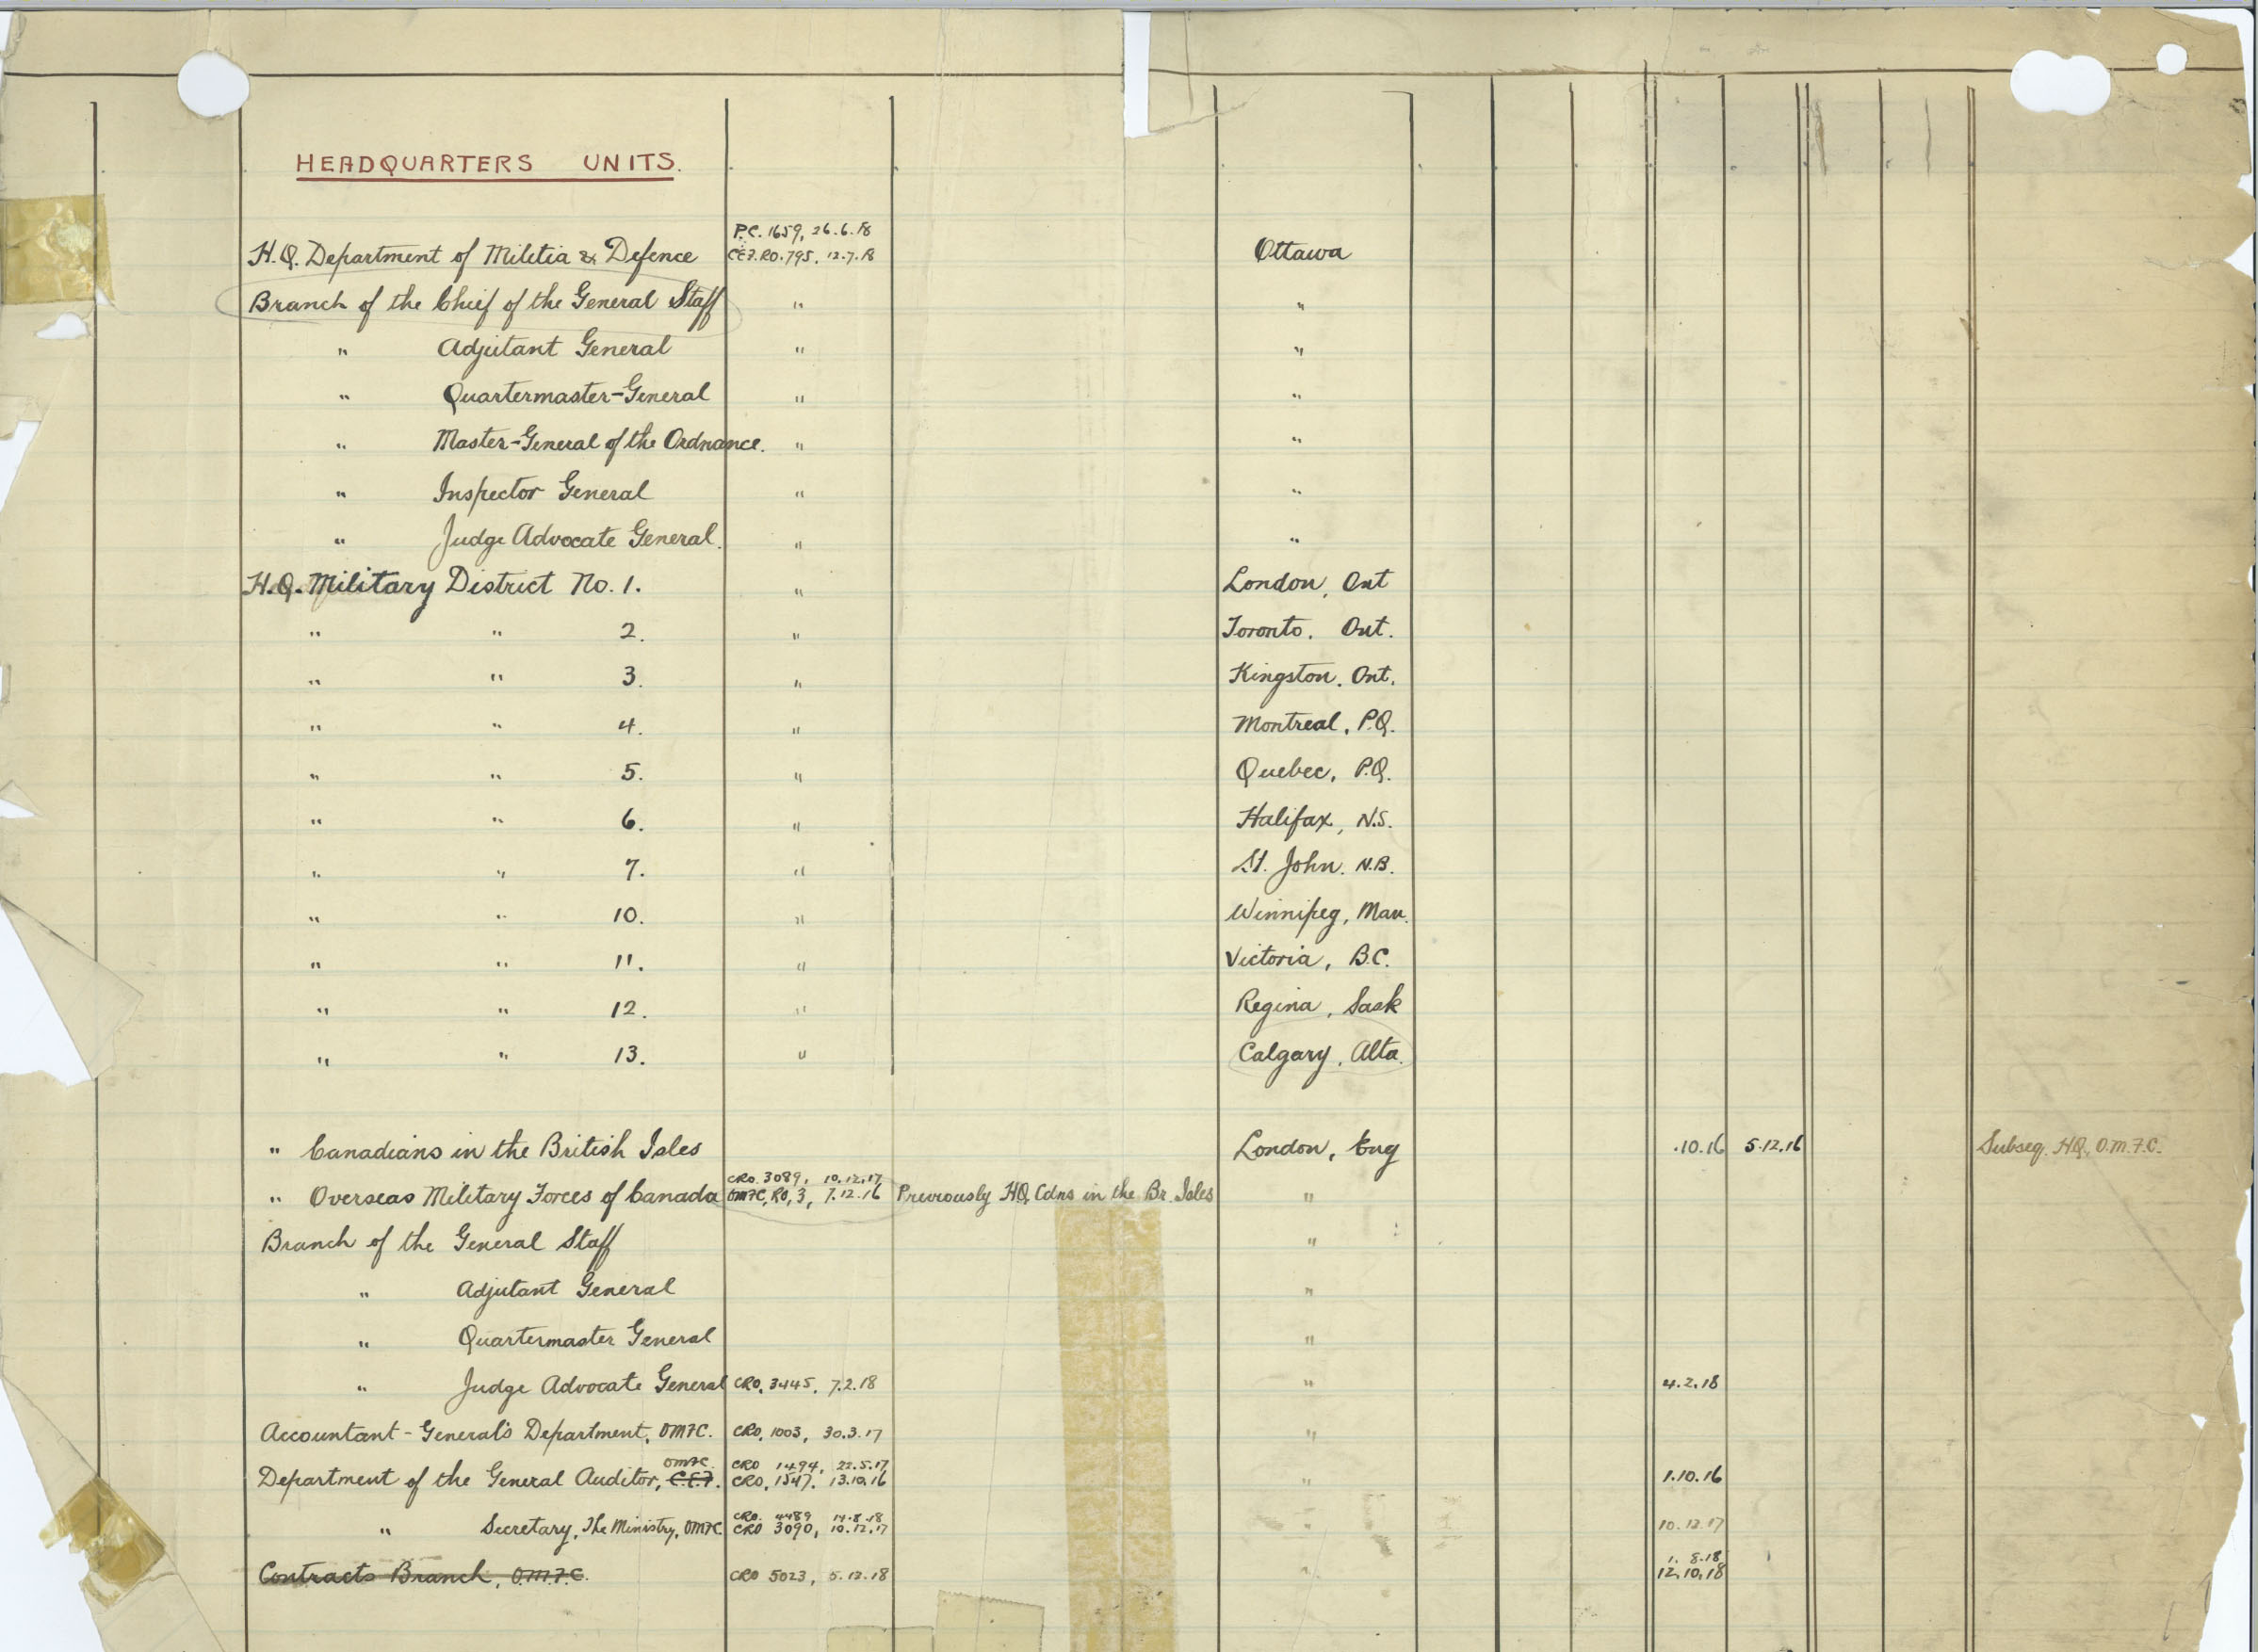 HEADQUARTERS UNITS.
P.C. 1659, 26.6.18
H.Q. Department of Militia & Defence C.E.F. R.O. 795, 12.7.18 Ottawa
Branch of the Chief of the General Staff " "
" Adjutant General " "
" Quartermaster-General " "
" Master-General of the Ordnance. " "
" Inspector General " "
" Judge Advocate General. " "
H.Q. Military District No. 1. " London, Ont
" " 2. " Toronto. Ont.
" " 3. " Kingston. Ont.
" " 4. " Montreal, P.Q.
" " 5. " Quebec, P.Q.
" " 6. " Halifax, N.S.
" " 7. " St. John. N.B.
" " 10. " Winnipeg, Man.
" " 11. " Victoria, B.C.
" " 12. " Regina, Sask
" " 13. " Calgary, Alta.
" Canadians in the British Isles London, Eng .10.16 5.12.16 Subseq. HQ, O.M.F.C.
CRO. 3089, 10.12.17
" Overseas Military Forces of Canada OMFC, RO, 3, 7.12.16 Previously HQ Cdns in the Br. Isles "
Branch of the General Staff "
" Adjutant General "
" Quartermaster General "
" Judge Advocate General CRO, 3445, 7.2.18 " 4.2.18
Accountant-General's Department, OMFC. CRO, 1003, 30.3.17 "
OMFC. CRO 1494, 22.5.17
Department of the General Auditor, C.E.F. CRO, 1547. 13.10.16 " 1.10.16
CRO. 4489 14.8.18
" Secretary, The Ministry, OMFC CRO 3090, 10.12.17 10.12.17
1. 8.18
Contracts Branch, O.M.F.C. CRO 5023, 5.12.18 " 12.10.18